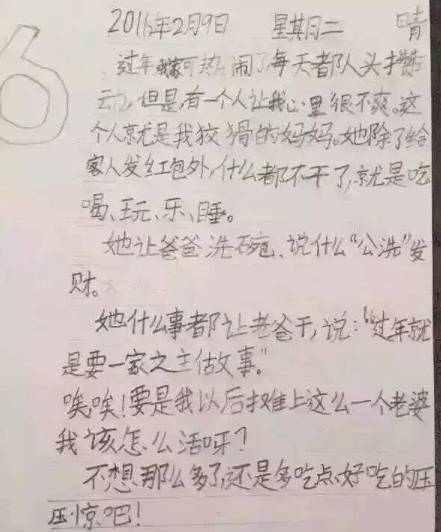 6
2016年2月9日 星期二 晴
过年我家可热闹了,每天都队人头攒
动,但是,有一个人让我心里很不爽。这
个人就是我狡猾的妈妈。她除了给
客人发红包外,什么都不干了,就是吃
喝、玩、乐、睡。
她让爸爸洗碗、说什么“公洗”发
财。
她什么事都让老爸干,说:“过年就
是要一家之主做事。”
唉唉!要是我以后摊上这么一个老婆
我该怎么活呀?
不想那么多了,还是多吃点好吃的压
压惊吧!